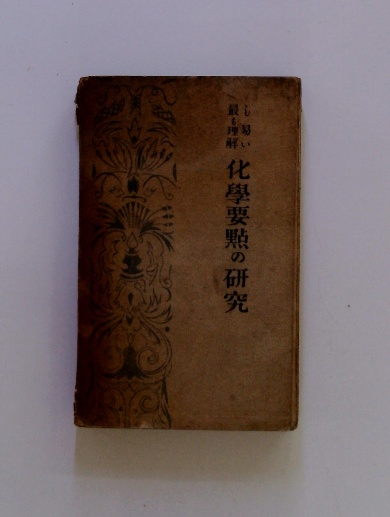 最も理解
し易い
化學要點の研究